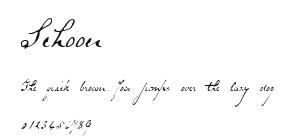 Schoon
The quick brown fox jumps over the lazy dog
0123456789